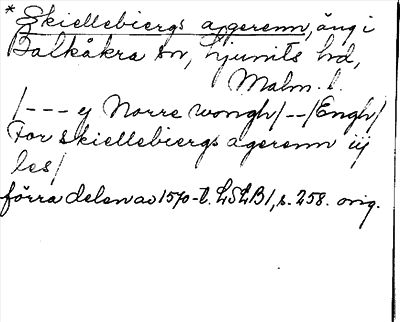 * Skiellebiergs agerenn, äng i
Balkåkra sn, Ljunits hd,
Malm. l.
/--- ej Norre wongh/--/Engh/
For skiellebiergs agerenn iij
les/
förra delen av 1570-t. LSLB1, s. 258. orig.